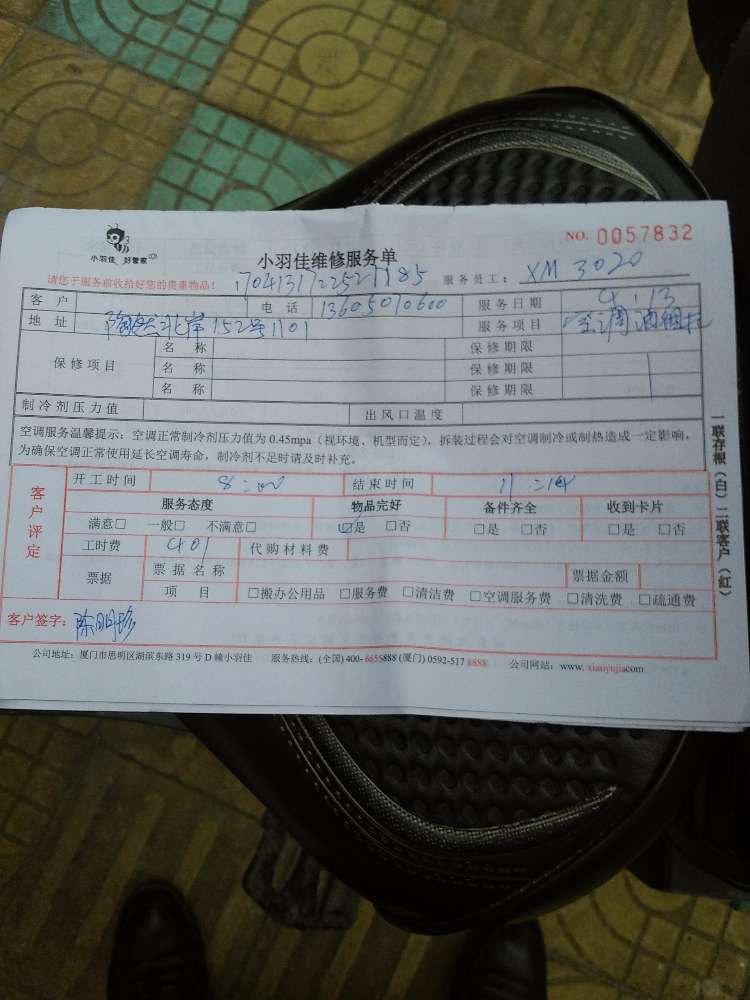 NO. 0057832
小羽佳 好管家
小羽佳维修服务单
请您于服务前收给好您的贵重物品！ 17041317225271185 服务员工： XM 3020
客 户 电 话 13605070600 服务日期 4.13
地 址 北岸152号1101 服务项目 空调
保修项目 名 称 保修期限
名 称 保修期限
名 称 保修期限
制冷剂压力值 出风口温度
空调服务温馨提示：空调正常制冷剂压力值为 0.45mpa（视环境、机型而定），拆装过程会对空调制冷或制热造成一定影响，
为确保空调正常使用延长空调寿命，制冷剂不足时请及时补充。
客户评定
开工时间 8:00 结束时间 11:14
服务态度 物品完好 备件齐全 收到卡片
满意□ 一般□ 不满意□ ☑是 □否 □是 □否 □是 □否
工时费 401 代购材料费
票据 票据名称 票据金额
项 目 □搬办公用品 □服务费 □清洁费 □空调服务费 □清洗费 □疏通费
客户签字： 陈明珍
公司地址：厦门市思明区湖滨东路 319 号 D 幢小羽佳 服务热线：(全国) 400- 6655888 (厦门) 0592-517 8888 公司网站：www. xiaoyujia.com
一联存根（白）二联客户（红）